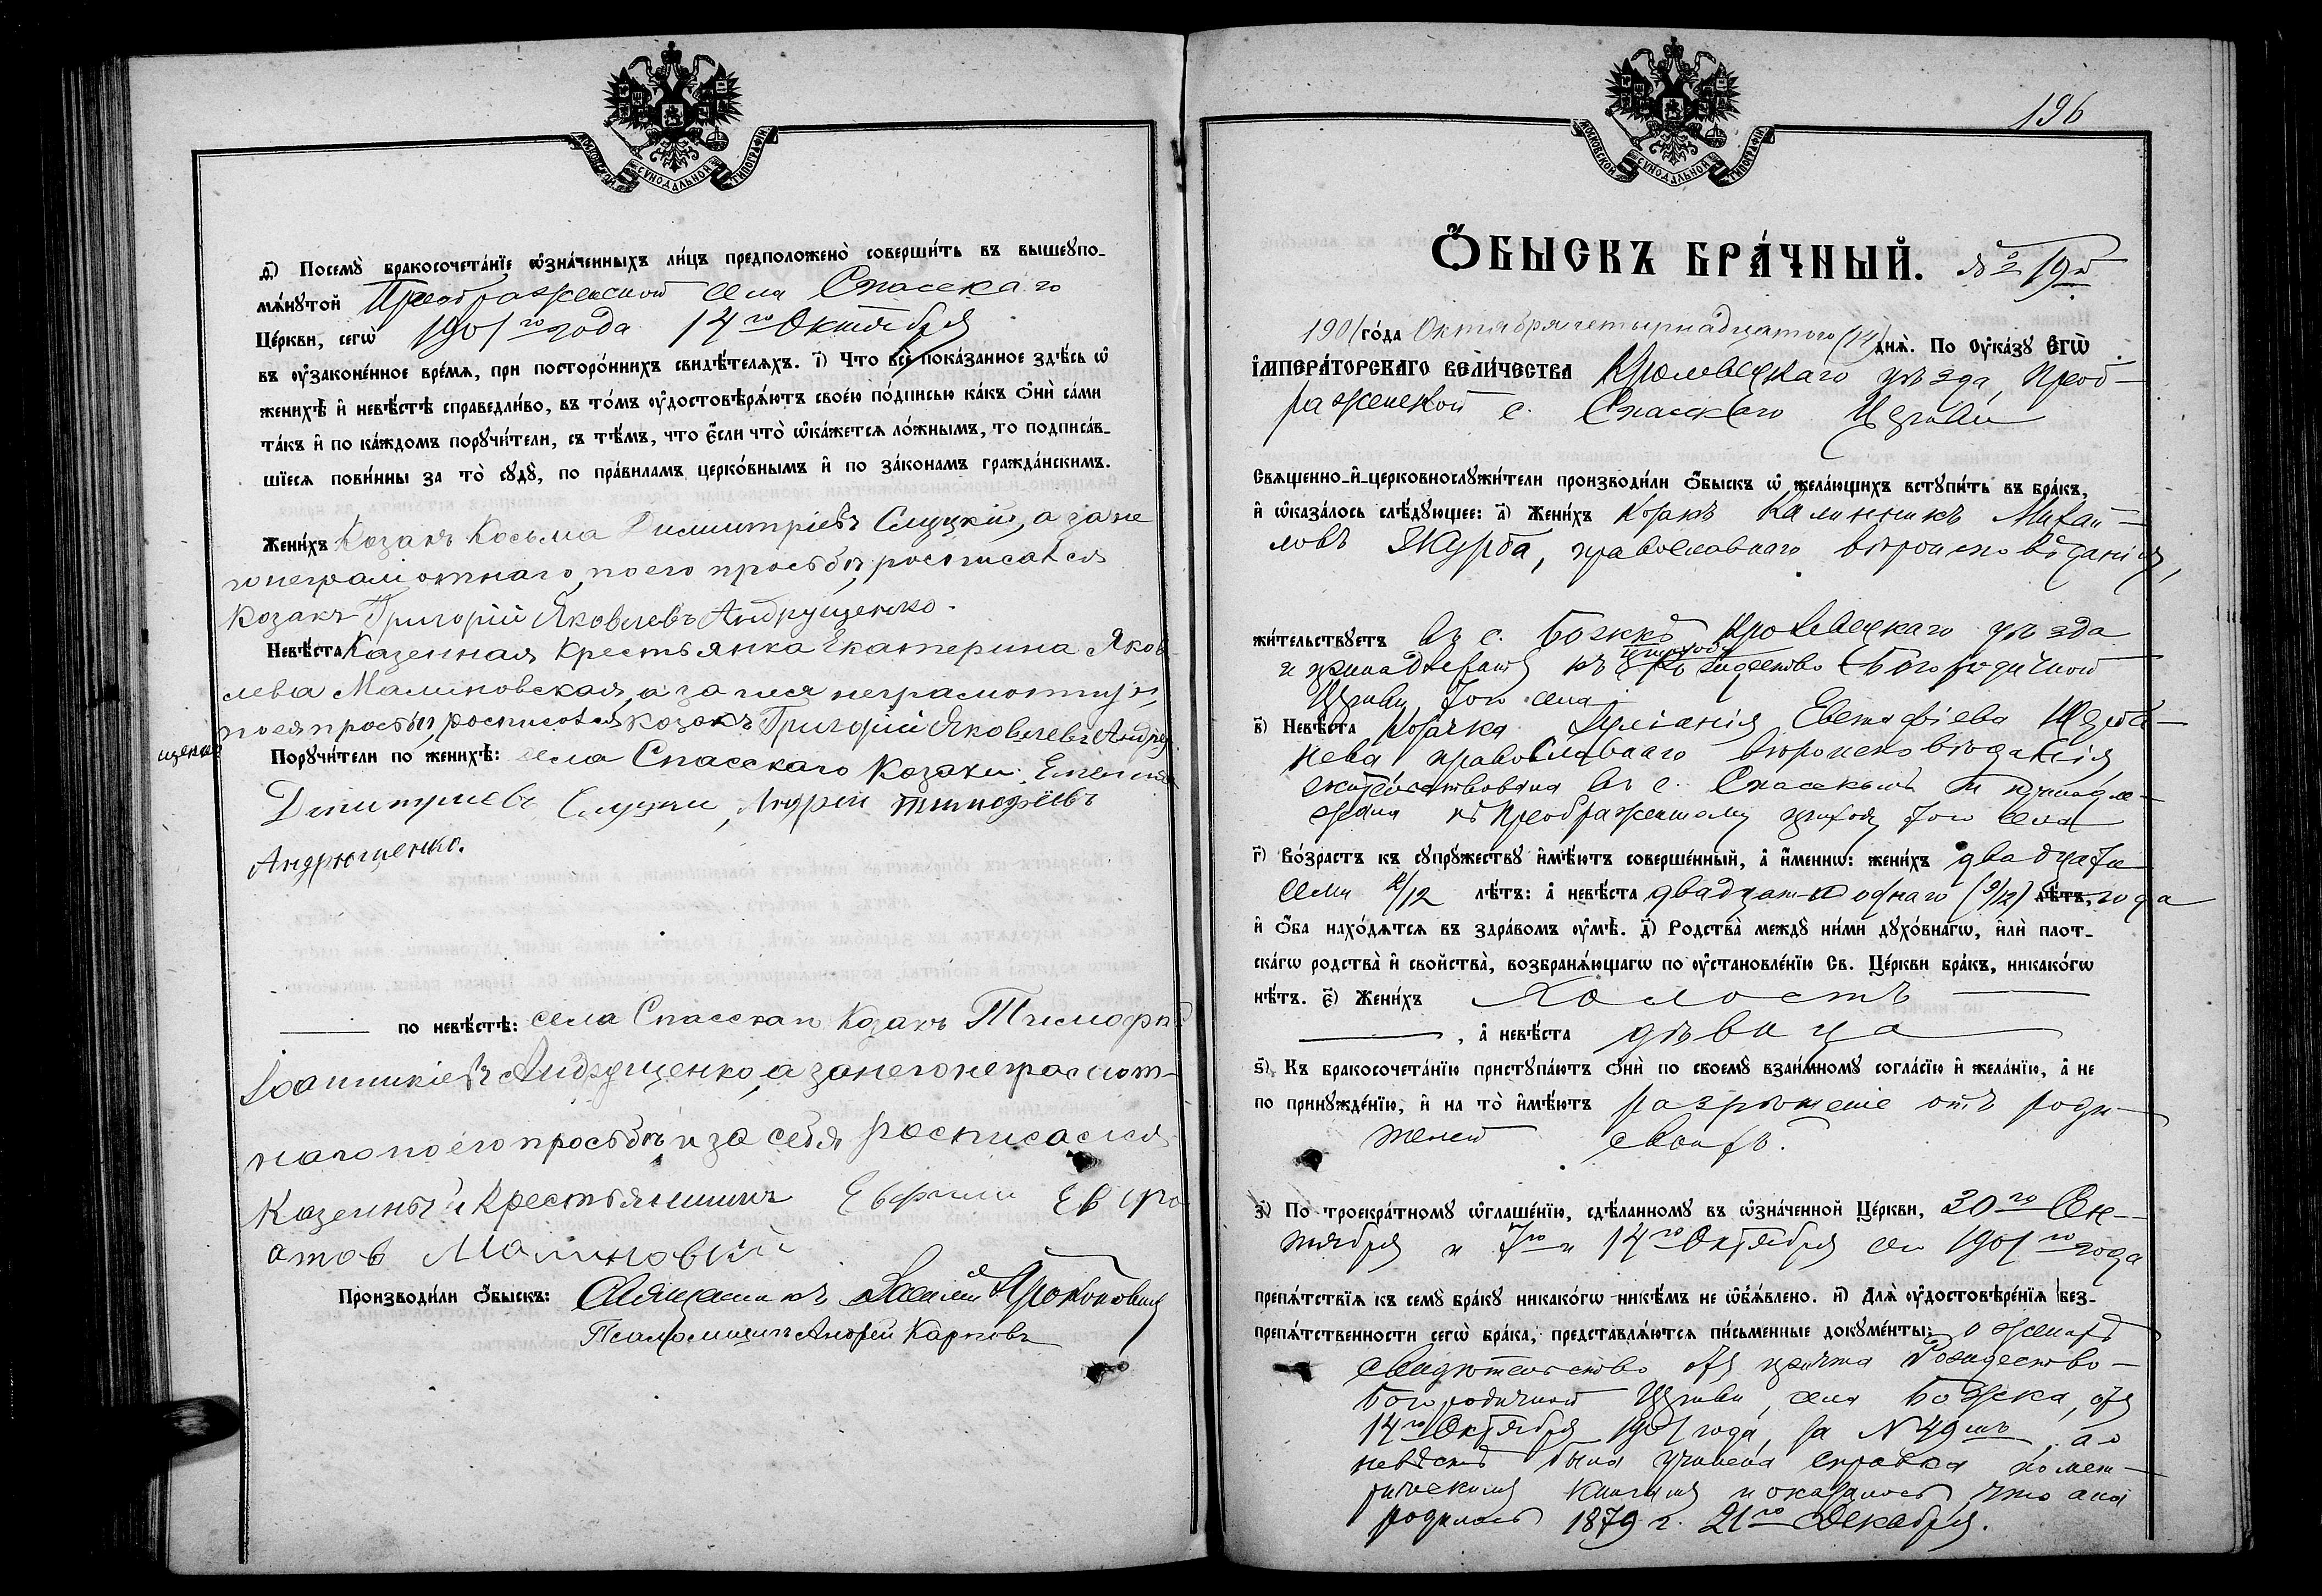 МОСКОВСКОЙ СѴНОДАЛЬНОЙ ТИПОГРАФІИ
д҃) Посемꙋ̀ бракосочета́нїе ѡ҆зна́ченныхъ ли́цъ предположено̀ соверши́ть въ вышеꙋпо-
мѧ́нꙋтой Преображенской села Спасскаго
Це́ркви, сегѡ̀ 1901го года 14го Октября
въ ᲂу҆законе́нное вре́мѧ, при посторо́ннихъ свидѣ́телѧхъ. і҃) Что̀ всѐ пока́занное здѣ́сь ѡ҆
женихѣ̀ и҆ невѣ́стѣ справедли́во, въ то́мъ ᲂу҆достовѣрѧ́ютъ свое́ю по́дписью ка́къ ѻ҆нѝ са́ми
та́къ и҆ по ка́ждомъ порꙋчи́тели, съ тѣ́мъ, что є҆́сли что̀ ѡ҆ка́жетсѧ ло́жнымъ, то подписа́в-
шїесѧ пови́нны за то̀ сꙋдꙋ̀, по пра́виламъ церко́внымъ и҆ по зако́намъ гражда́нскимъ.
Жени́хъ Козакъ Косьма Димитріевъ Слуцкій, а за не
го неграмотнаго, по его просьбѣ, росписался
козакъ Григорій Яковлевъ Андрущенко.
Невѣ́ста Казенная крестьянка Екатерина Яков
лева Малиновская, а за нея неграмотную,
по ея просьбѣ, росписался козакъ Григорій Яковлевъ Андру
щенко
Порꙋчи́тели по женихѣ̀: села Спасскаго Козаки:
Димитріевъ Слуцкій, Андрей Тимофѣевъ
Андрющенко.
по невѣ́стѣ: села Спасскаго Козакъ Тимофей
Іоанникіевъ Андрущенко, а за него неграмот-
наго по его просьбѣ и за себя росписался
Казеный Крестьянинъ Евфимій
Малиновскій
Производи́ли ѻ҆́быскъ: Священникъ Василій Прокоповичъ
Псаломщикъ Андрей Карповъ
196
МОСКОВСКОЙ СѴНОДАЛЬНОЙ ТИПОГРАФІИ
Ѻ҆́БЫСКЪ БРА́ЧНЫЙ. № 19й
1901 го́да Октября четырнадцатого (14) днѧ̀. По Оу҆ка́зꙋ Є҆ГѠ̀
І҆МПЕРА́ТОРСКАГО ВЕЛИ́ЧЕСТВА Кролевецкаго уѣзда, Преоб-
раженской с. Спасскаго Церкви
Свѧщенно-и҆-церковнослꙋжи́тели производи́ли ѻ҆́быскъ ѡ҆ жела́ющихъ встꙋпи́ть въ бра́къ,
и҆ ѡ҆каза́лось слѣ́дꙋющее: а҃) Жени́хъ козакъ Калинникъ Михай-
ловъ Жкурба, православнаго вѣроисповѣданія,
жи́тельствꙋетъ въ с. Божкѣ Кролевецкаго уѣзда
и принадлежитъ къ приходу Рождество-Богородичной
Церкви того села
в҃) Невѣ́ста козачка Іуліанія Евстафіева
православнаго вѣроисповѣданія
жительствовала въ с. Спасскомъ и принадле-
жала къ Преображенскому приходу того села
г҃) Во́зрастъ къ сꙋпрꙋ́жествꙋ и҆мѣ́ютъ соверше́нный, а҆ и҆́менно: жени́хъ двадцати
семи /12 лѣ́тъ: а҆ невѣ́ста двадцать одного (9/12) лѣ́тъ, года
и҆ ѻ҆́ба нахо́дѧтсѧ въ здра́вомъ ᲂу҆мѣ̀. д҃) Родства̀ междꙋ̀ ни́ми дꙋхо́внагѡ, и҆лѝ плот-
ска́гѡ родства̀ и҆ свойства̀, возбранѧ́ющагѡ по ᲂу҆становле́нїю Св. Це́ркви бра́къ, никако́гѡ
нѣ́тъ. є҃) Жени́хъ Холостъ
, а҆ невѣ́ста дѣвица
ѕ҃) Къ бракосочета́нїю пристꙋпа́ютъ ѻ҆нѝ по своемꙋ̀ взаи́мномꙋ согла́сїю и҆ жела́нїю, а҆ не
по принꙋжде́нїю, и҆ на то̀ и҆мѣ́ютъ разрѣшеніе отъ роди-
телей своихъ.
з҃) По троекра́тномꙋ ѡ҆глаше́нїю, сдѣ́ланномꙋ въ ѡ҆зна́ченной Це́ркви, 30го Сен-
тября и 7го и 14го Октября сего 1901го года
препѧ́тствїѧ къ семꙋ̀ бра́кꙋ никако́гѡ никѣ́мъ не ѡ҆б̾ѧ́влено. и҃) Длѧ̀ ᲂу҆достовѣре́нїѧ без-
препѧ́тственности сегѡ̀ бра́ка, представлѧ́ютсѧ пи́сьменные докꙋме́нты: о женихѣ
свидѣтельство отъ причта Рождество-
Богородичной Церкви, села Божка, отъ
14го Октября 1901 года, за № 49мъ, а о
невѣстѣ была учинена справка по мет-
рическимъ книгамъ и оказалось, что она
родилась 1879 г. 21го Декабря.